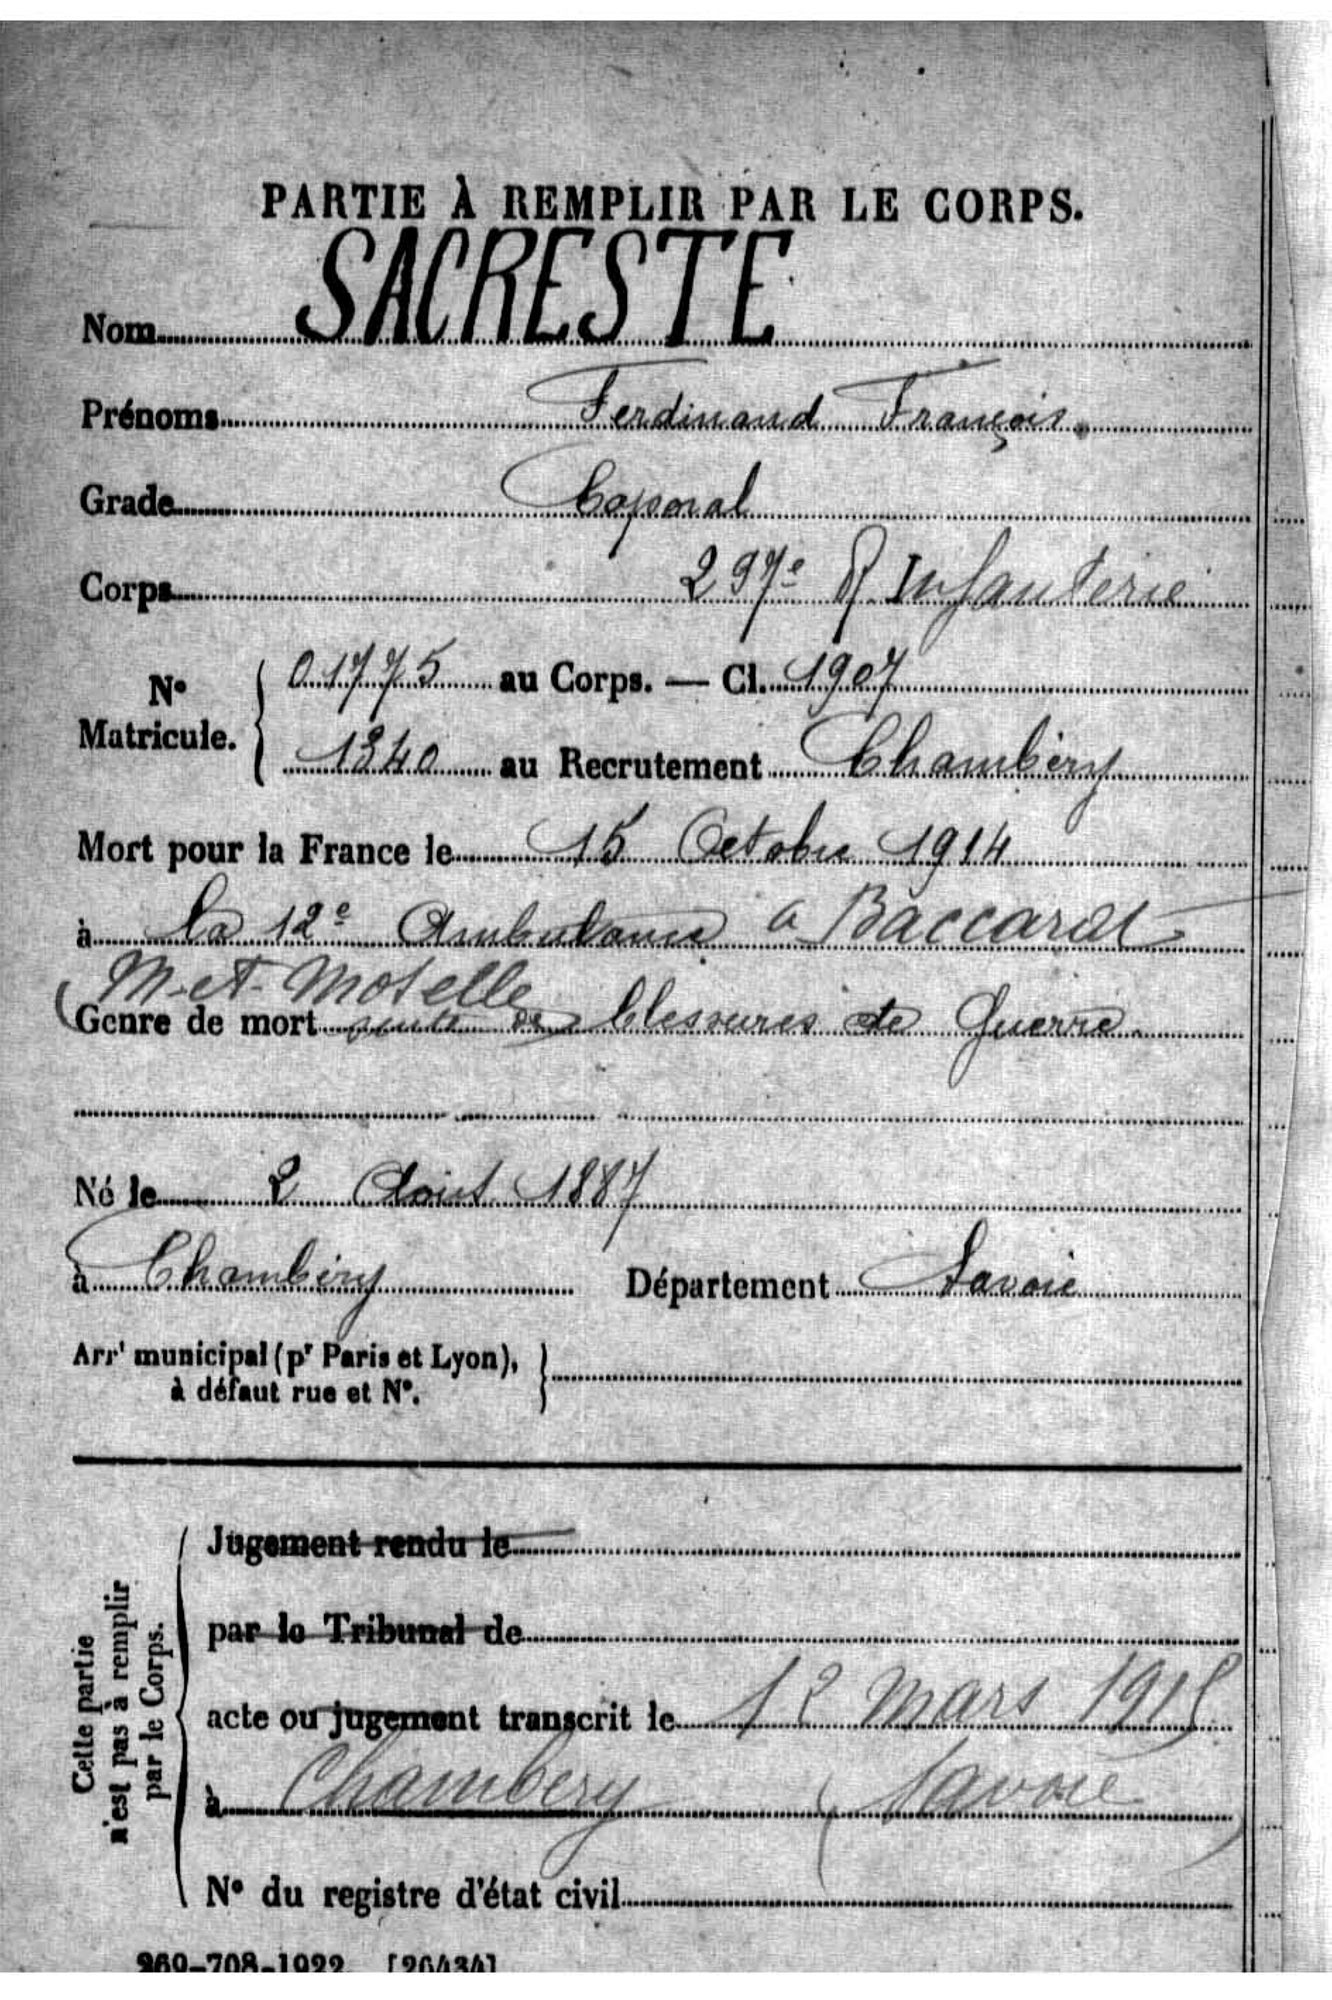 PARTIE À REMPLIR PAR LE CORPS.
Nom SACRESTE
Prénoms Ferdinand François
Grade Caporal
Corps 297e R Infanterie
N° Matricule. 01775 au Corps. — Cl. 1907
1340 au Recrutement Chambéry
Mort pour la France le 15 Octobre 1914
à la 12e Ambulance a Baccarat
(M-et-Moselle
Genre de mort suite de blessures de Guerre
Né le 2 Août 1887
à Chambéry Département Savoie
Arrt municipal (pr Paris et Lyon),
à défaut rue et N°.
Cette partie
n'est pas à remplir
par le Corps.
Jugement rendu le
par le Tribunal de
acte ou jugement transcrit le 12 mars 1915
à Chambéry (Savoie)
N° du registre d'état civil
269-708-1922. [26434]